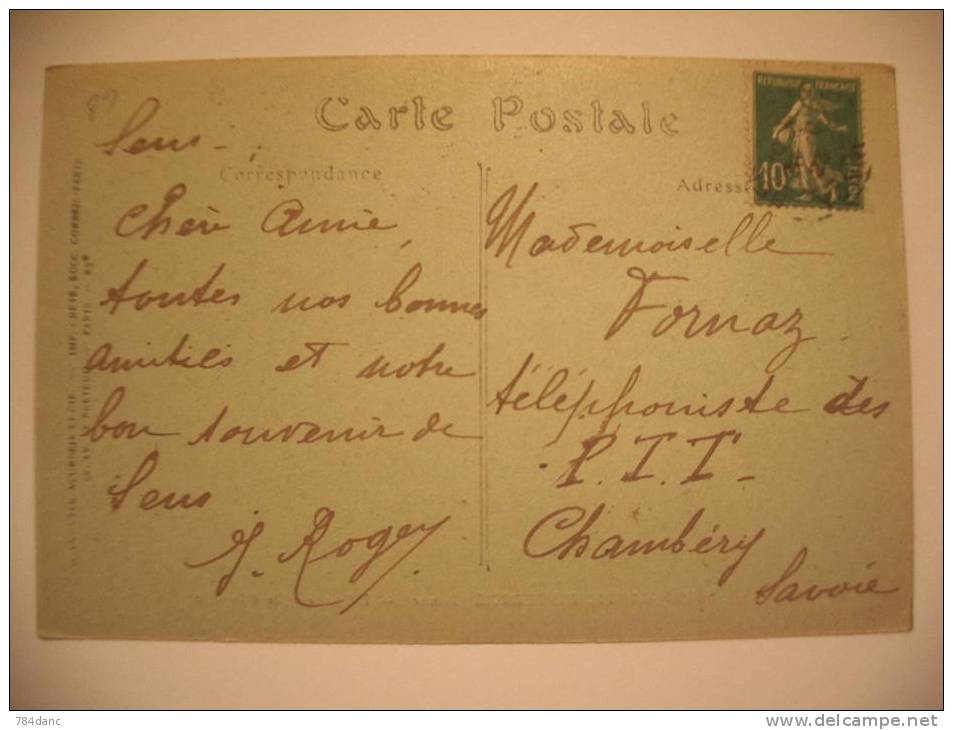 Carte Postale
Correspondance
Sens -
Chère Amie,
toutes nos bonnes
amitiés et notre
bon souvenir de
Sens
J. Roger
REPUBLIQUE FRANÇAISE
10
Adress
Mademoiselle
Fornaz.
téléphoniste des
- P.T.T. -
Chambéry
Savoie
784danc
www.delcampe.net